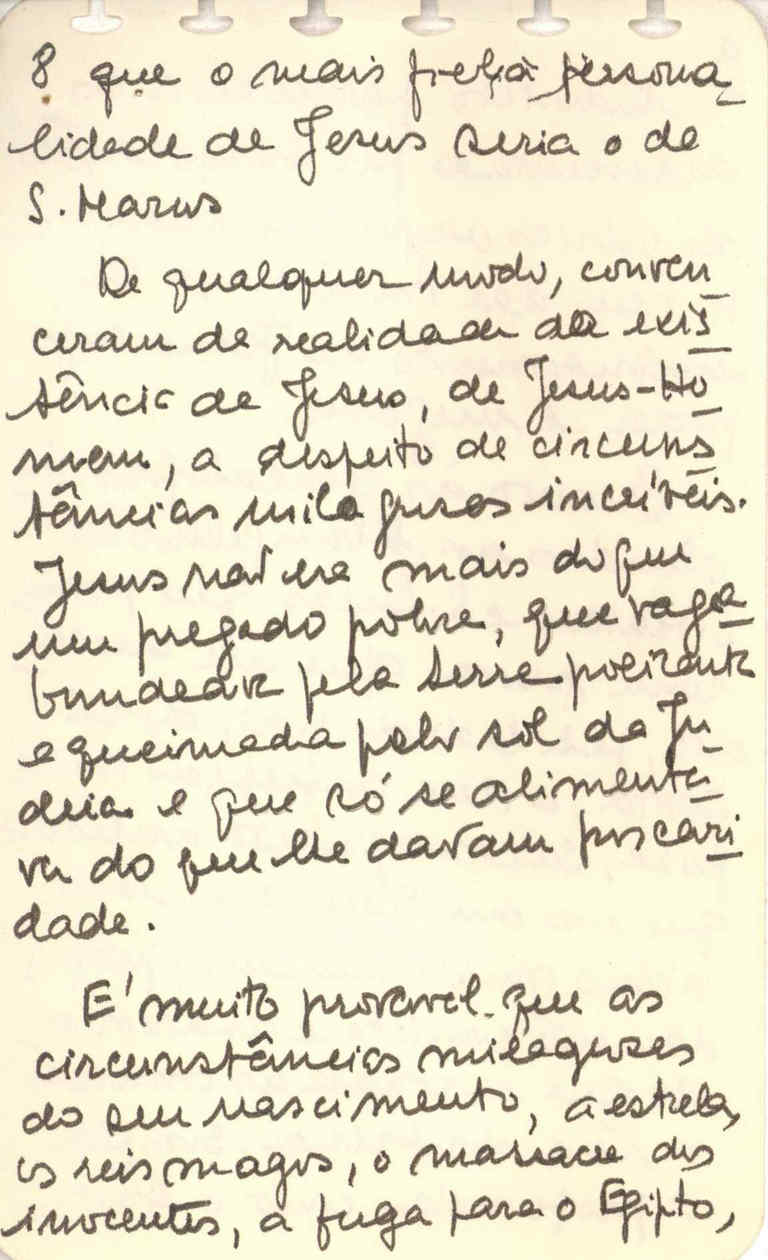 8 que o mais fiel à persona-
lidade de Jesus seria o de
S. Marcus
De qualquer modo, conven-
ceram da realidade da exis-
tência de Jesus, de Jesus-Ho-
mem, a despeito de circuns-
tâncias milagrosas incríveis.
Jesus não era mais do que
um pregado pobre, que vaga-
bundeava pela terra poeirenta
e queimada pelo sol da Ju-
deia e que só se alimenta-
va do que lhe davam por cari-
dade.
É muito provável que as
circunstâncias milagrosas
do seu nascimento, a estrela,
os reis magos, o massacre dos
inocentes, a fuga para o Egipto,